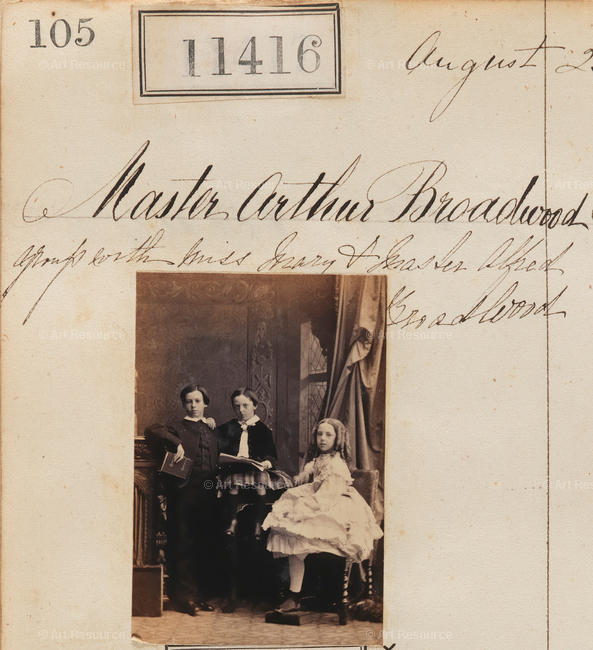 105
11416
August 2
Master Arthur Broadwood
group with Miss Mary & Master Alfred
Broadwood
© Art Resource